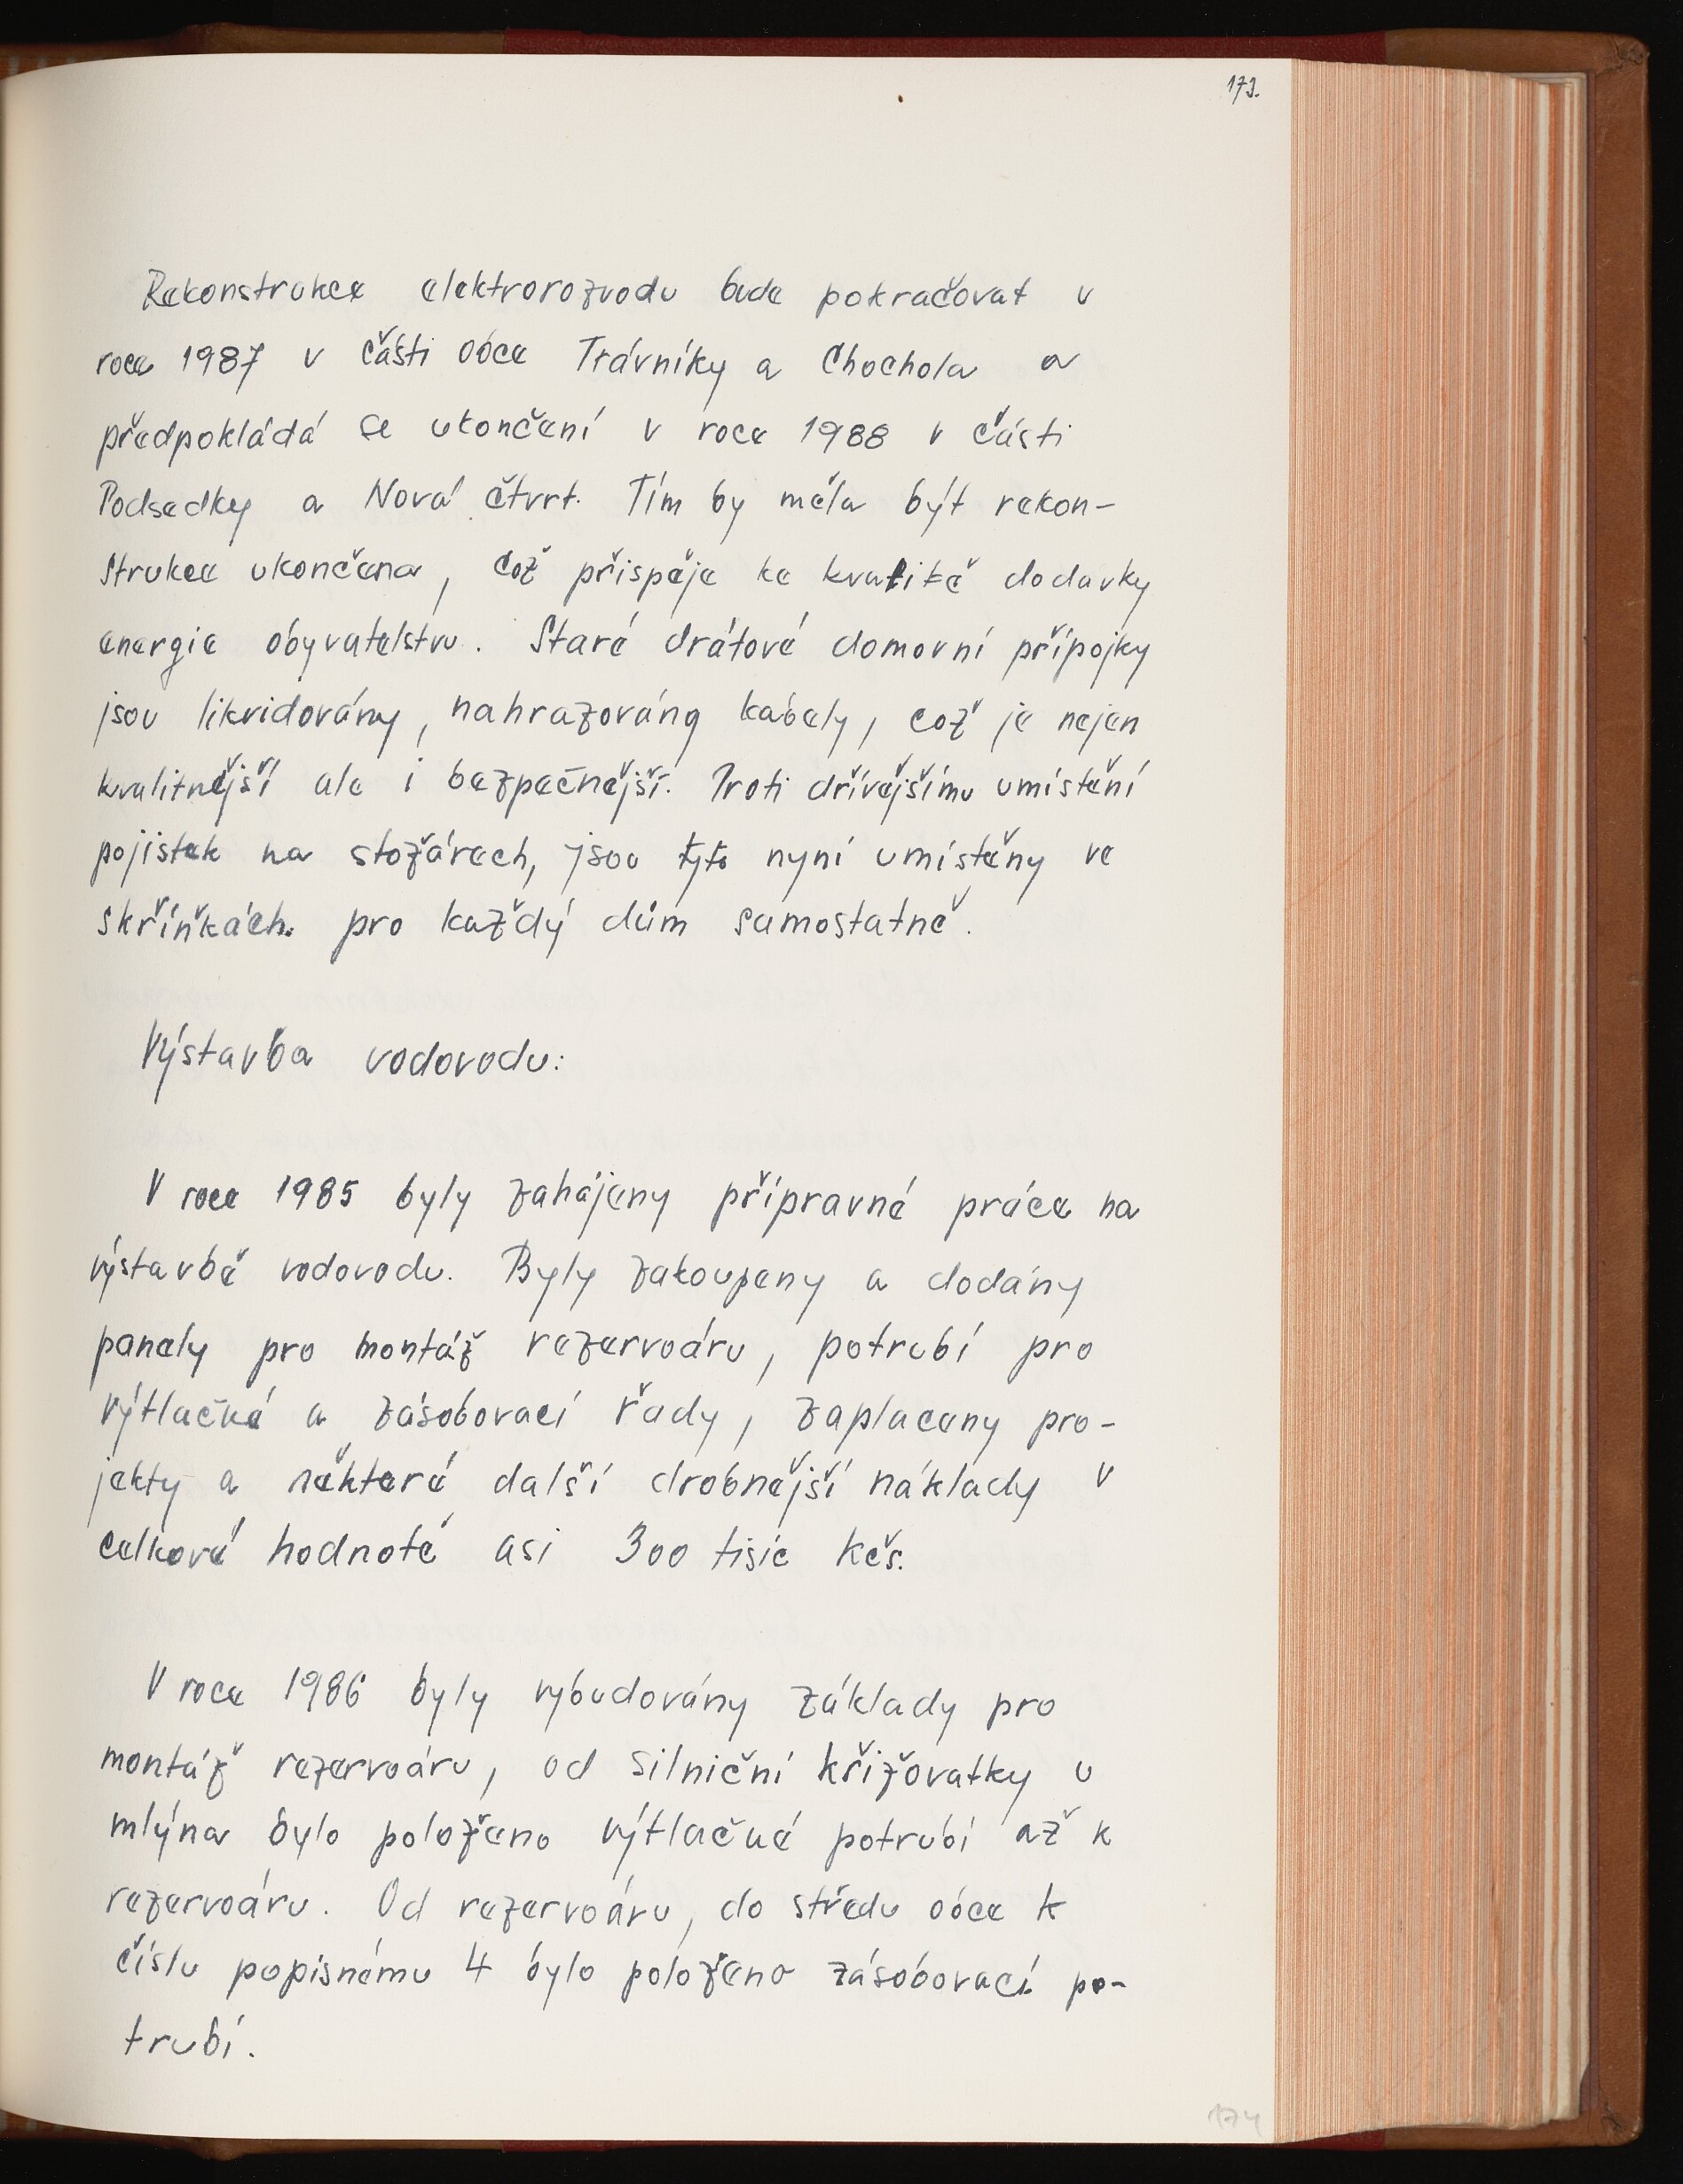 173.
Rekonstrukce elektrorozvodu bude pokračovat v
roce 1987 v části obce Trávníky a Chochola a
předpokládá se ukončení v roce 1988 v části
Podsedky a Nová čtvrt. Tím by měla být rekon-
strukce ukončena, což přispěje ke kvalitě dodavky
energie obyvatelstvu. Staré drátové domovní přípojky
jsou likvidovány, nahrazovány kabely, což je nejen
kvalitnější ale i bezpečnější. Proti dřívějšímu umístění
pojistek na stožárech, jsou tyto nyní umístěny ve
skříňkách. pro každý dům samostatně.
Výstavba vodovodu:
V roce 1985 byly zahájeny přípravné práce na
výstavbě vodovodu. Byly zakoupeny a dodány
panely pro montáž rezervoáru, potrubí pro
výtlačné a zásobovací řady, zaplaceny pro-
jekty a některé další drobnější náklady v
celkové hodnotě asi 300 tisíc kčs.
V roce 1986 byly vybudovány základy pro
montáž rezervoáru, od silniční křižovatky u
mlýna bylo položeno výtlačné potrubí až k
rezervoáru. Od rezervoáru, do středu obce k
číslu popisnému 4 bylo položeno zásobovací po-
trubí.
174